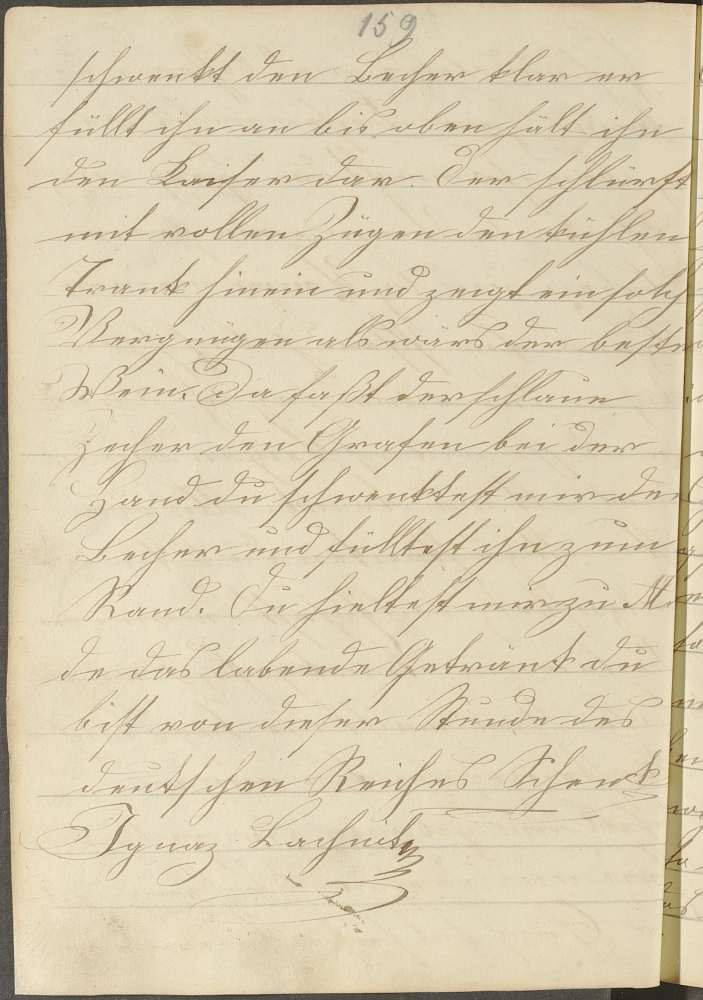 159
schwenkt den Becher klar er
füllt ihn an bis oben hält ihn
den Kaiser dar. Der schlürft
mit vollen Zügen den kühlen
Trank hinein und zeigt ein solch
Vergnügen als wärs der beste
Wein. Da faßt der schlaue
Zecher den Grafen bei der
Hand du schwenktest mir den
Becher und fülltest ihn zum
Rand. Du hieltest mir zu
de das labende Getränk du
bist von dieser Stunde des
deutschen Reiches Schenk
Ignaz